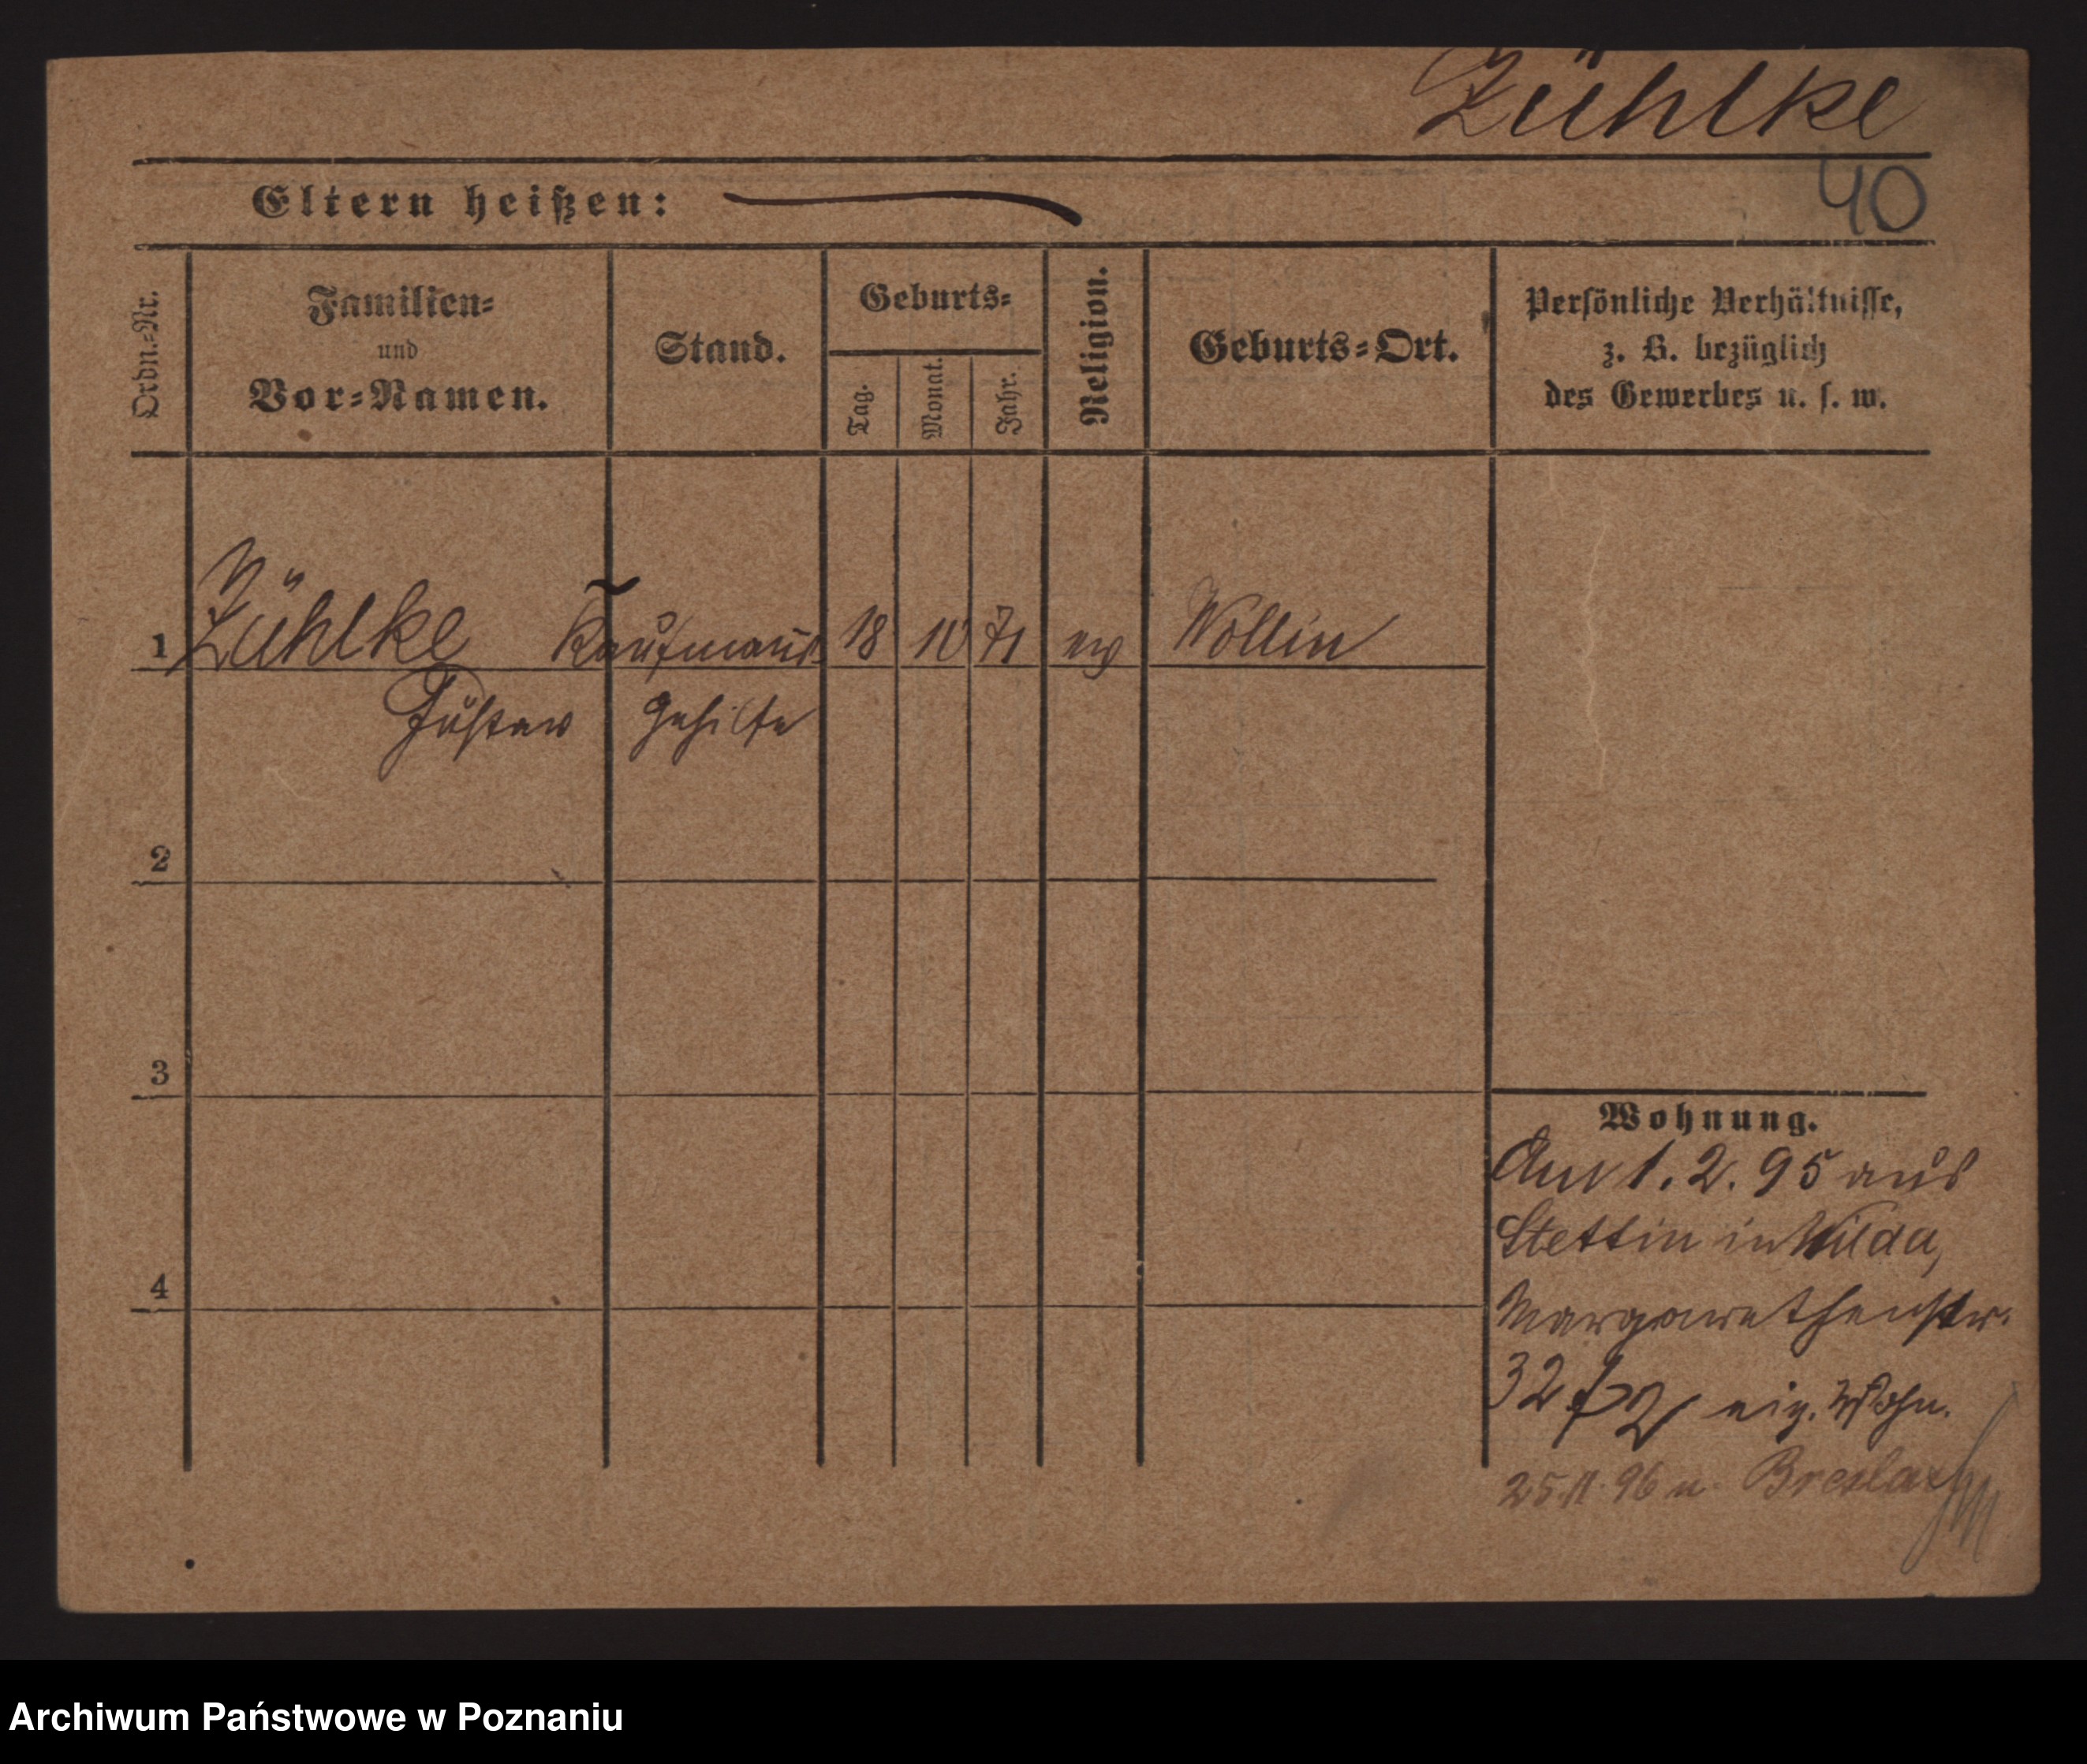 Zühlke
Eltern heißen:
40
Ordn.-Nr.
Familien-
und
Vor-Namen.
Stand.
Geburts-
Tag.
Monat.
Jahr.
Religion.
Geburts-Ort.
Persönliche Verhältnisse,
z. B. bezüglich
des Gewerbes u. s. w.
1 Zühlke Kaufmanns 18 10 71 ev Wollin
Gustav Gehilfe
2
3
4
Wohnung.
Am 1.2.95 aus
Stettin in Wilda,
Margarethenstr.
32 eig. Wohn.
25.11.96 n. Breslau
Archiwum Państwowe w Poznaniu